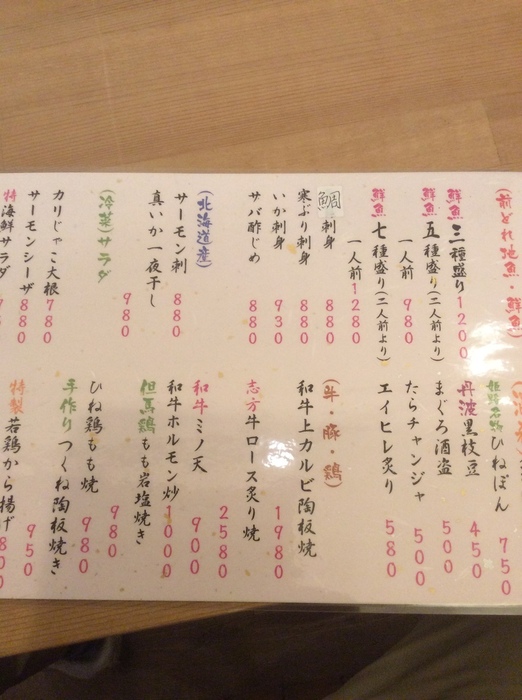 (前どれ池魚・鮮魚)
鮮魚三種盛り1200
鮮魚五種盛り(二人前より)
一人前 980
鮮魚七種盛り(二人前より)
一人前1280
鯛刺身 880
寒ぶり刺身 880
いか刺身 930
サバ酢じめ 880
(北海道産)
サーモン刺 880
真いか一夜干し
980
(冷菜)サラダ
カリじゃこ大根 780
サーモンシーザ 880
特海鮮サラダ
姫路名物ひねぽん 750
丹波黒枝豆 450
まぐろ酒盗 500
たらチャンジャ 500
エイヒレ炙り 580
(牛・豚・鶏)
和牛上カルビ陶板焼 1980
志方牛ロース炙り焼 2580
和牛ミノ天 900
和牛ホルモン炒 1000
但馬鶏もも岩塩焼き 980
ひね鶏もも焼 980
手作りつくね陶板焼き 950
特製若鶏から揚げ 800